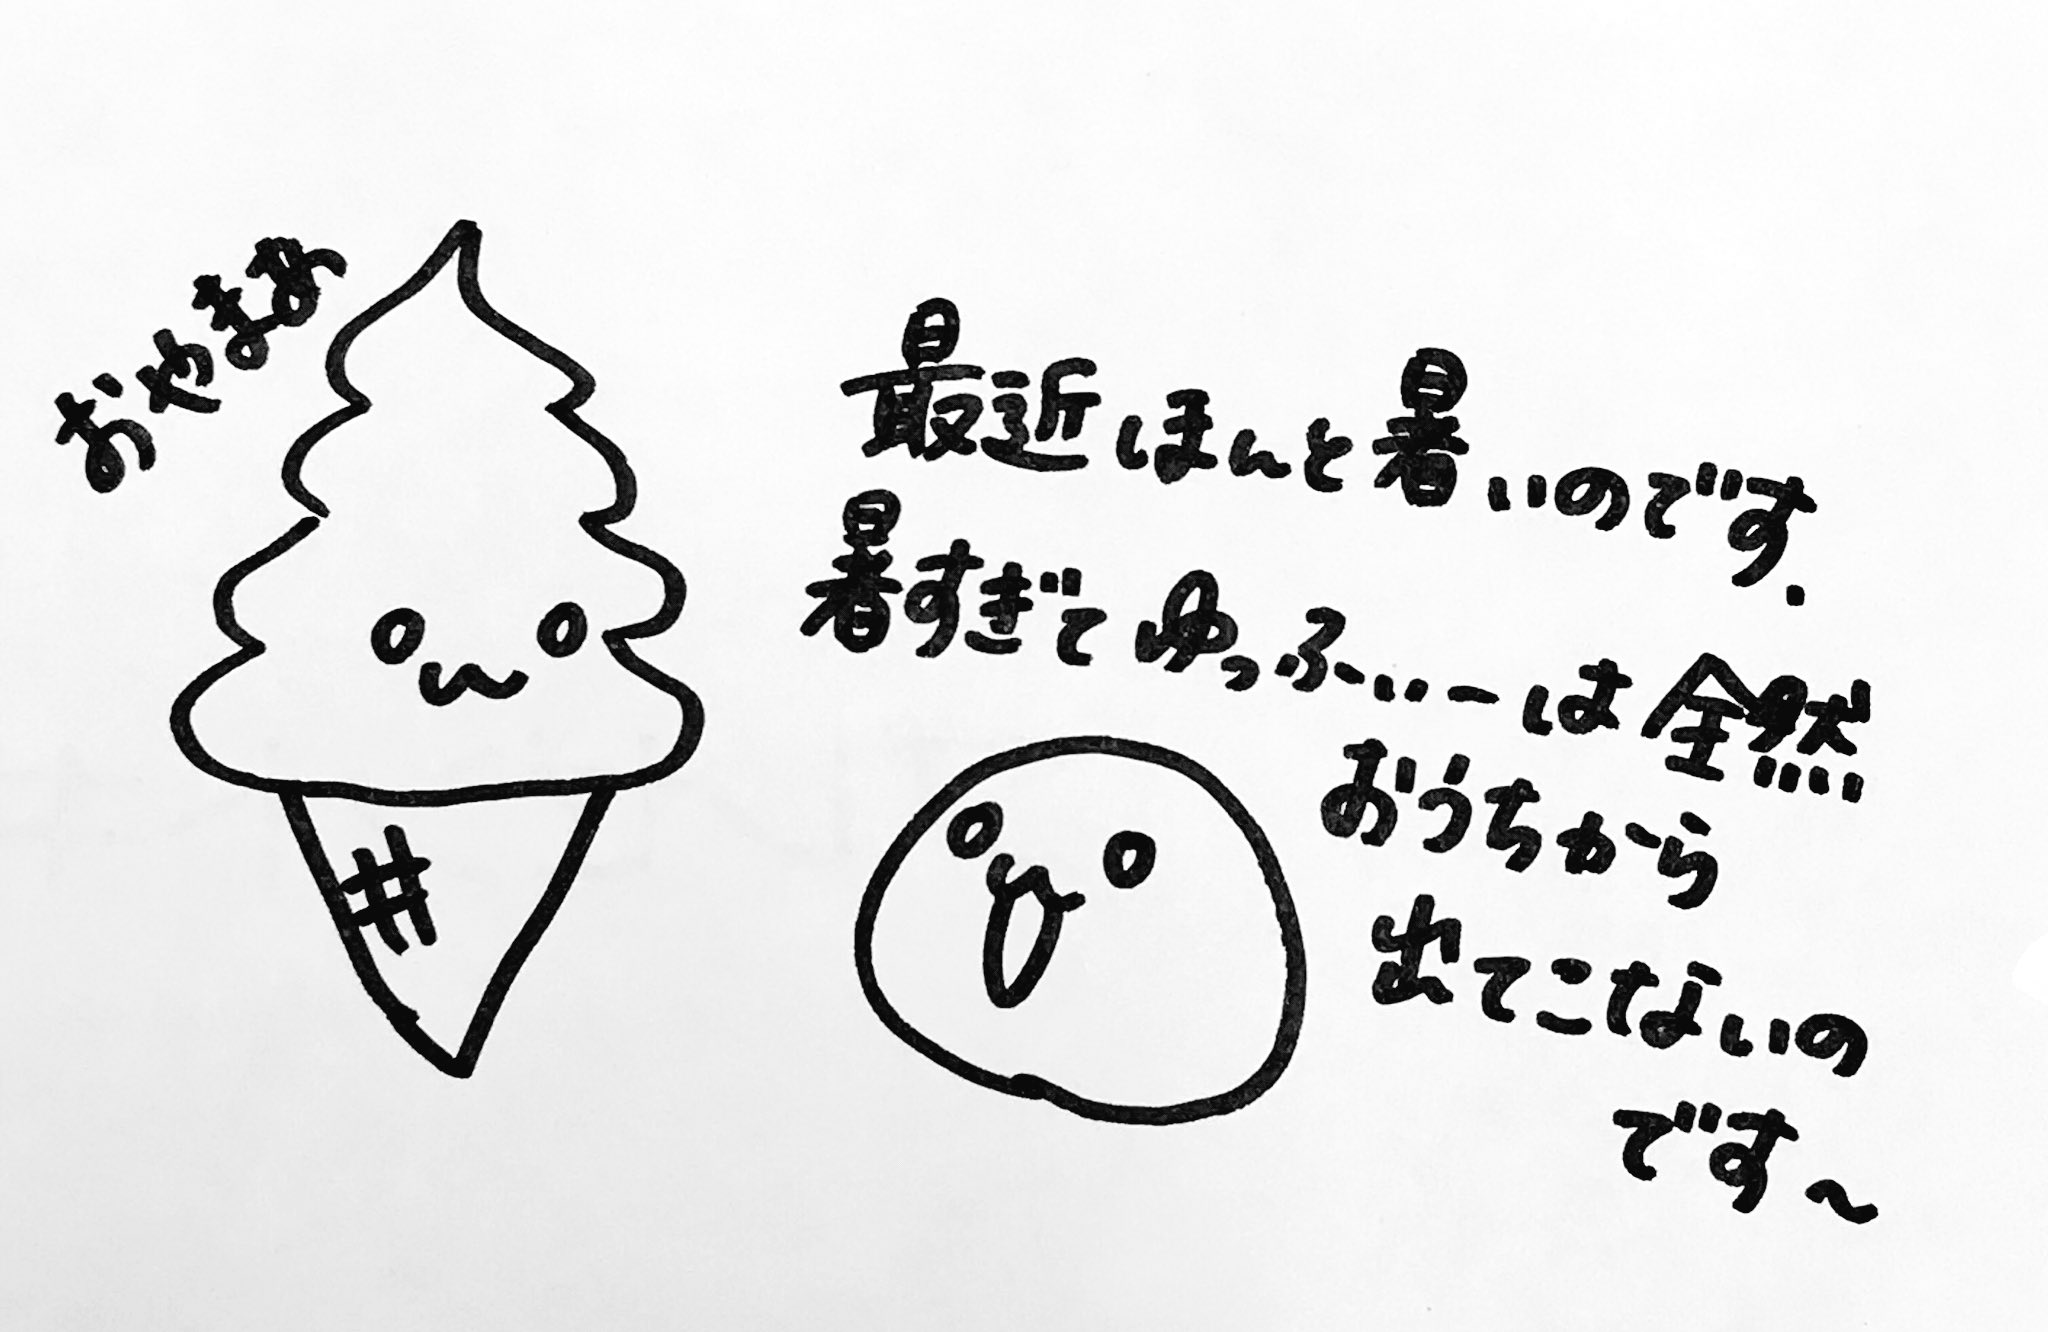 おやまあ
最近ほんと暑いのです.
暑すぎてゆっふぃーは全然
おうちから
出てこないの
です〜